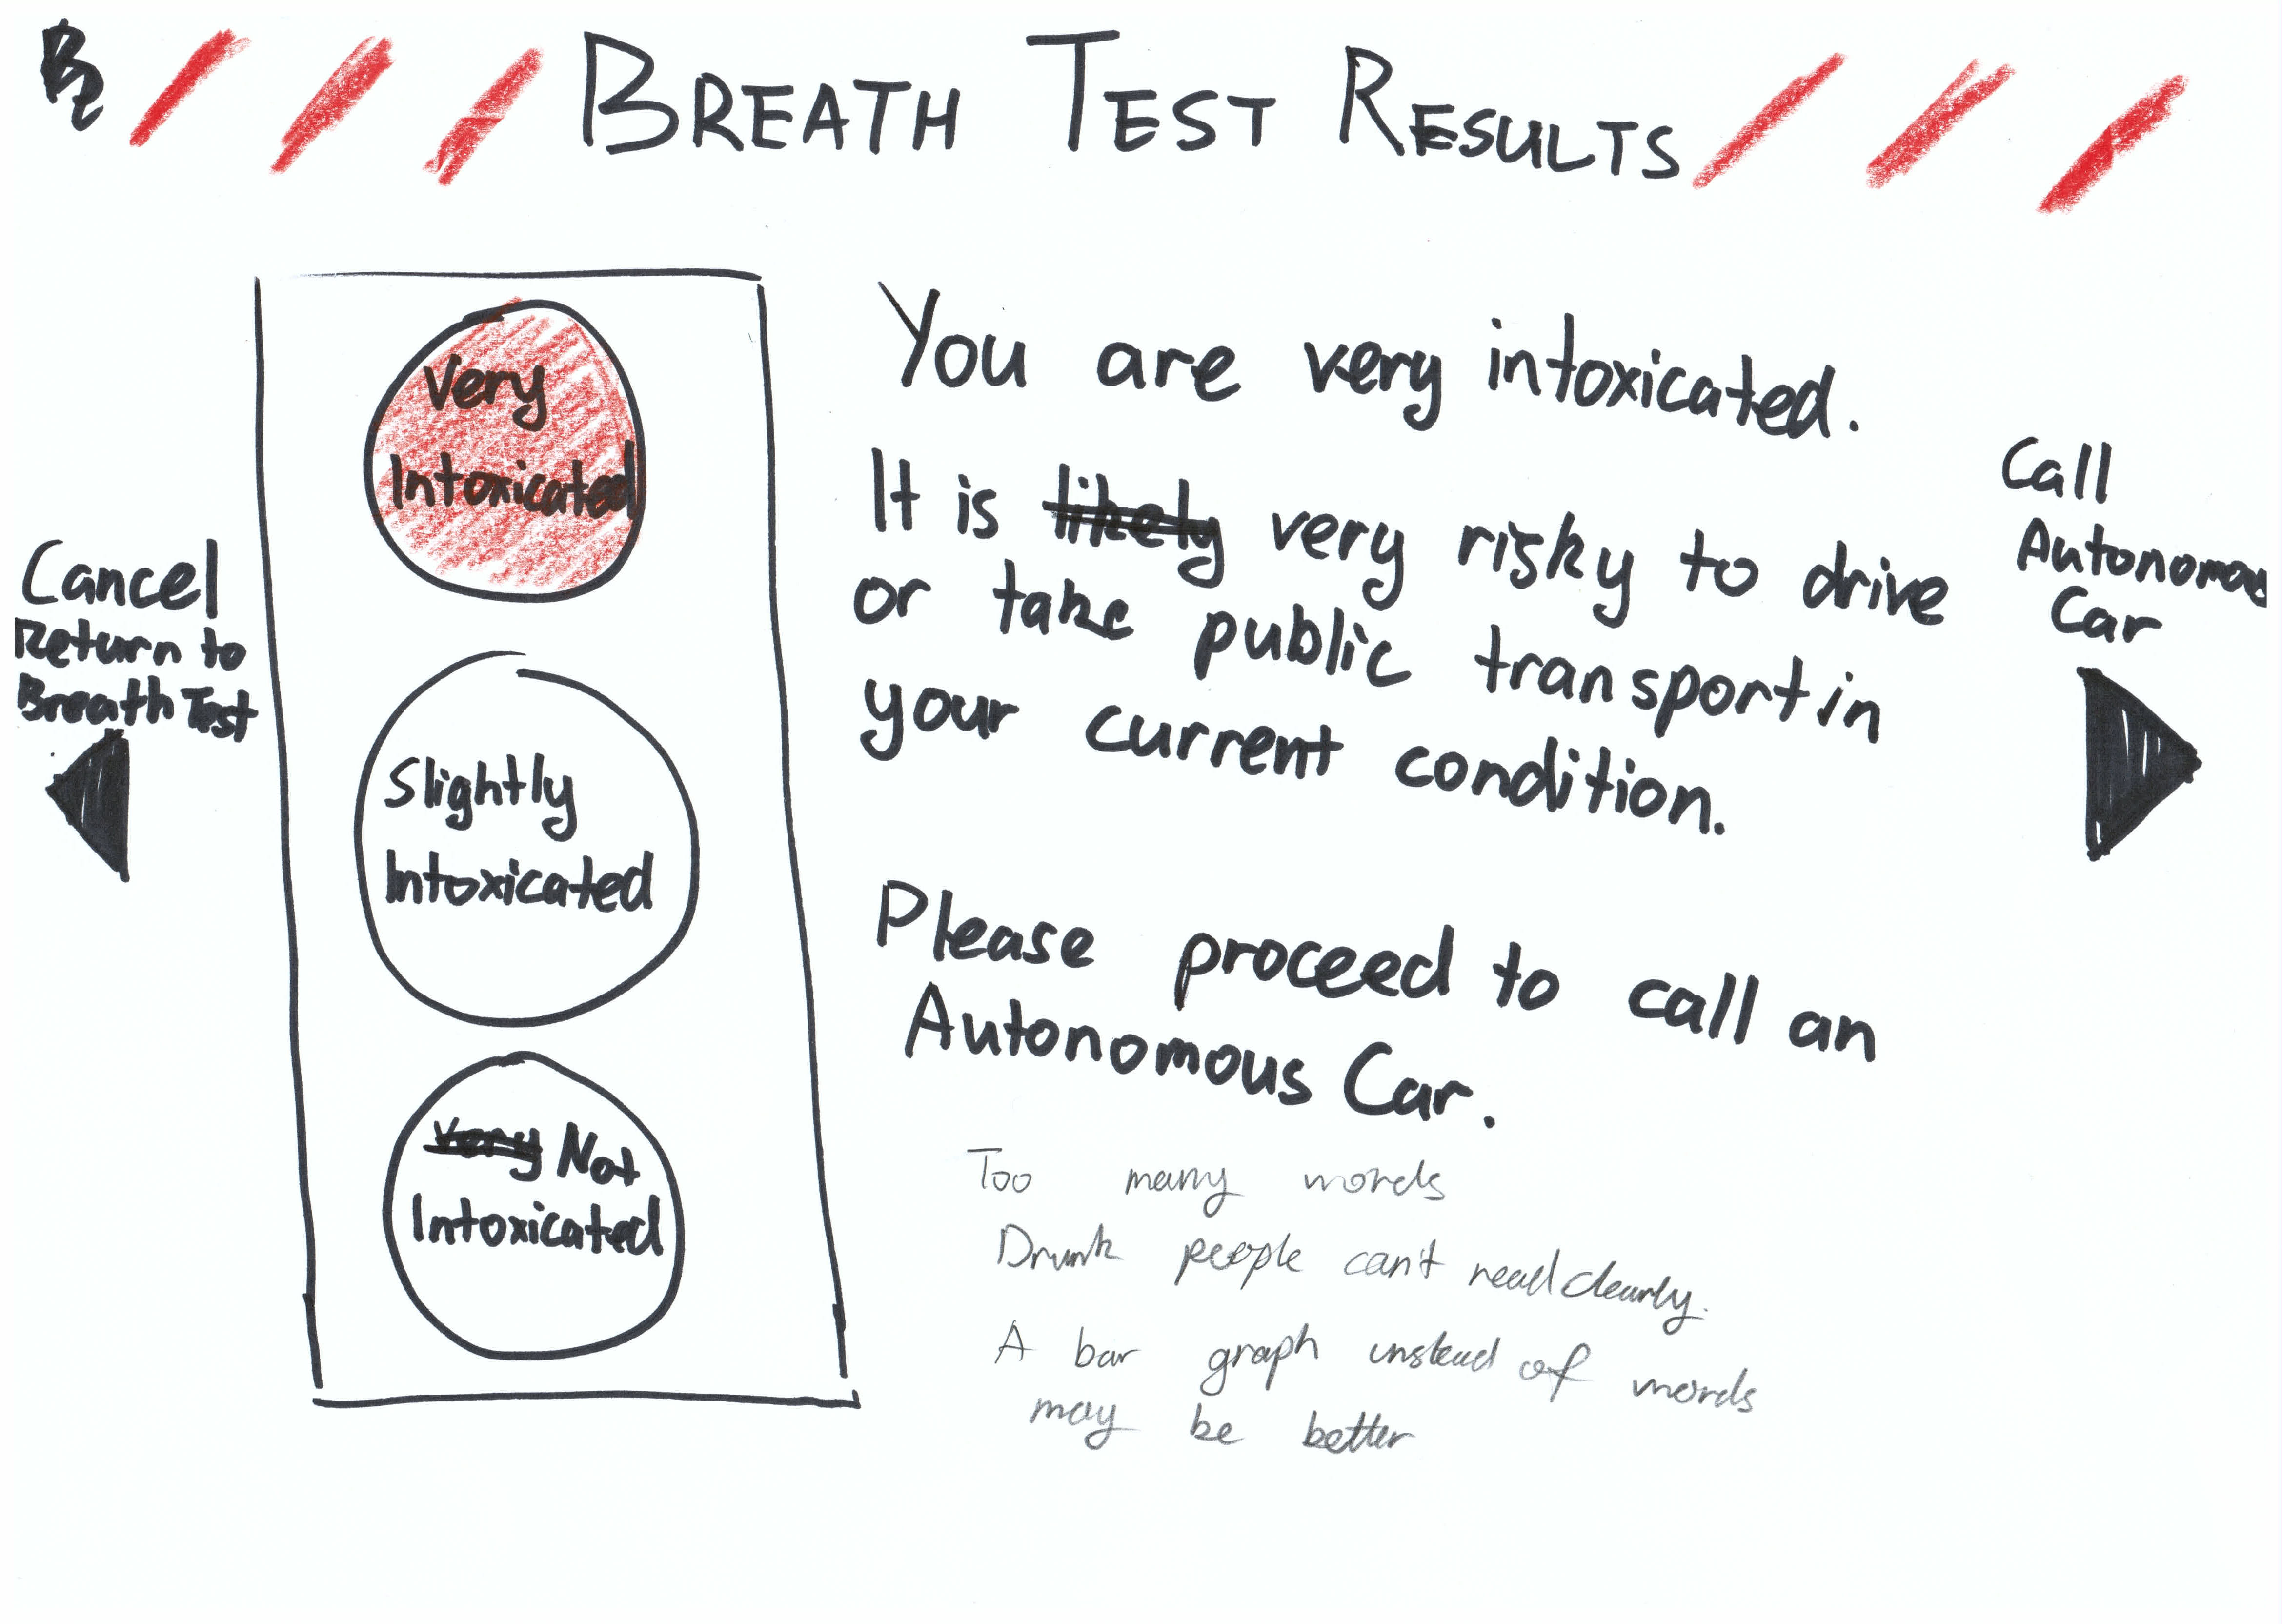 BREATH TEST RESULTS
Very
Intoxicated
Slightly
Intoxicated
Very Not
Intoxicated
Cancel
Return to
Breath Test
You are very intoxicated.
It is likely very risky to drive
or take public transport in
your current condition.
Please proceed to call an
Autonomous Car.
Call
Autonomous
Car
Too many words
Drunk people can't read clearly.
A bar graph instead of words
may be better